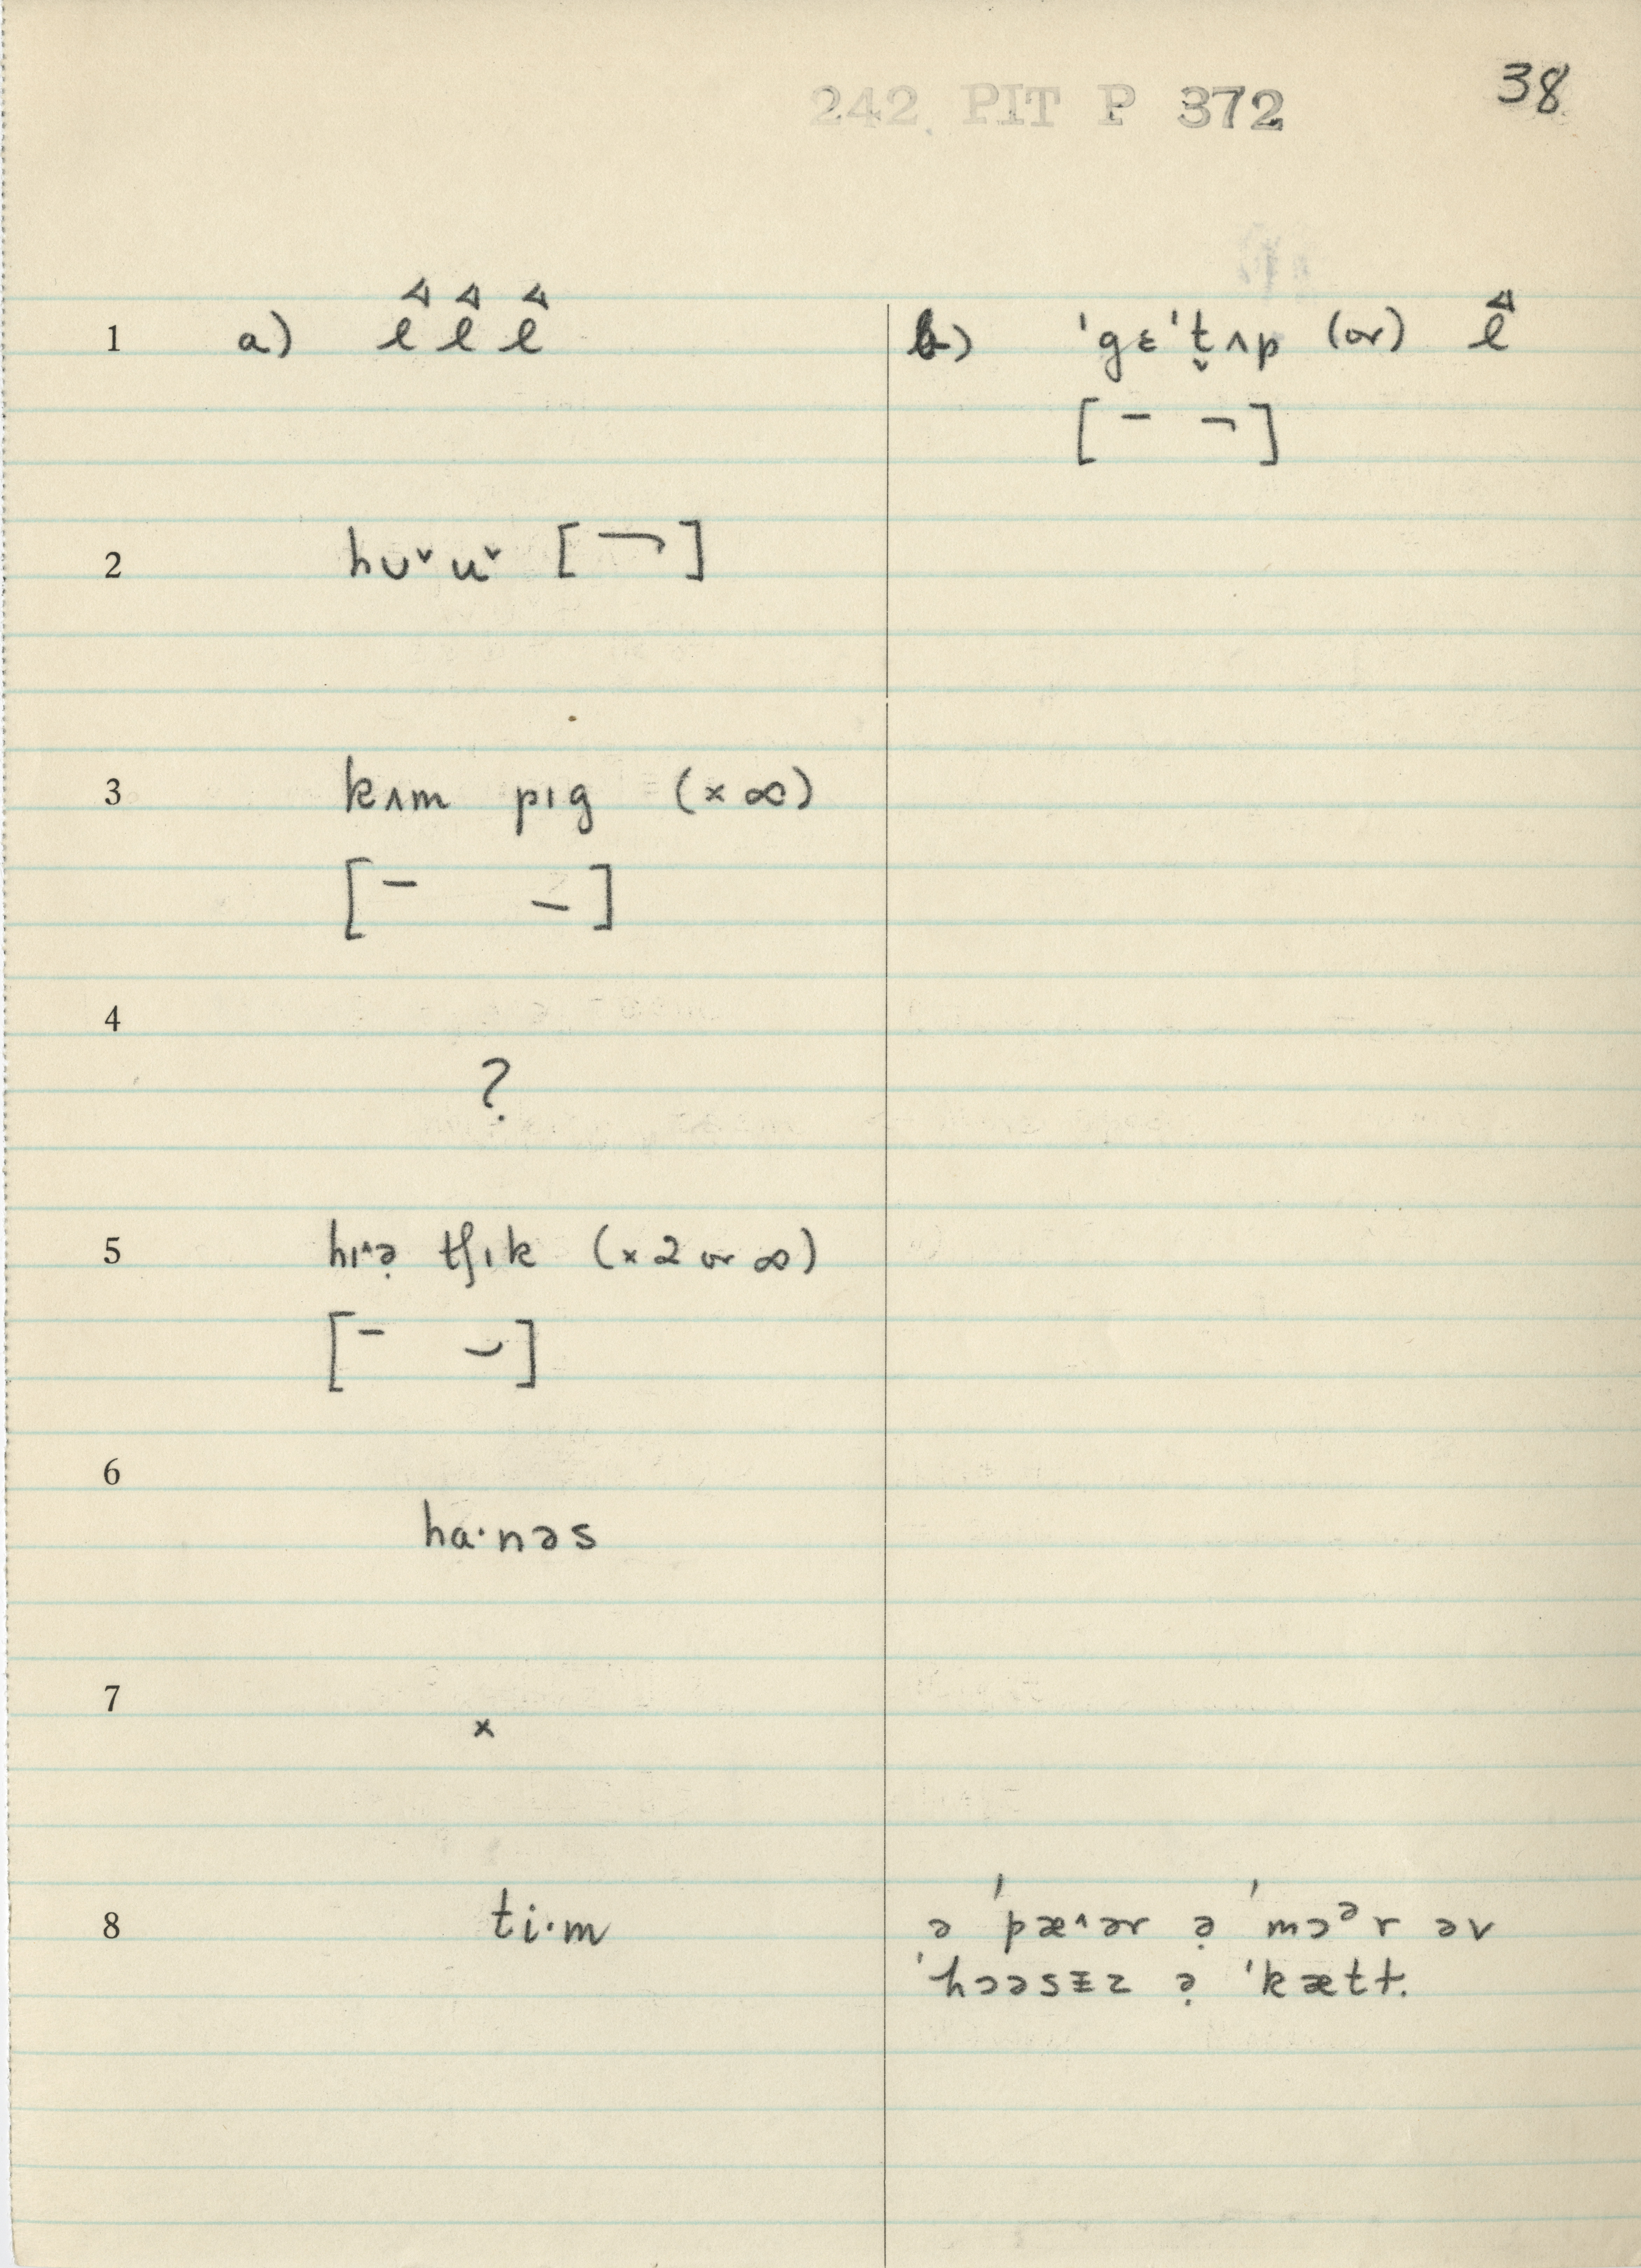 242 PIT P 372
38
1 a) l l l b) ˈgɛˈt̬ʌp (or) l
[ ¯ ¬ ]
2 hʊˇuˇ [ ¬ ]
3 kʌm pɪg (× ∞)
[ – – ]
4
?
5 hɪ^ə̣ tʃɪk (× 2 or ∞)
[ – ⌣ ]
6
ha·nəs
7
×
8 ti·m ə ˈpæ^ər ə̣ ˈmɔᵊr əv
ˈhɔəsɪz ə̣ ˈkætt.